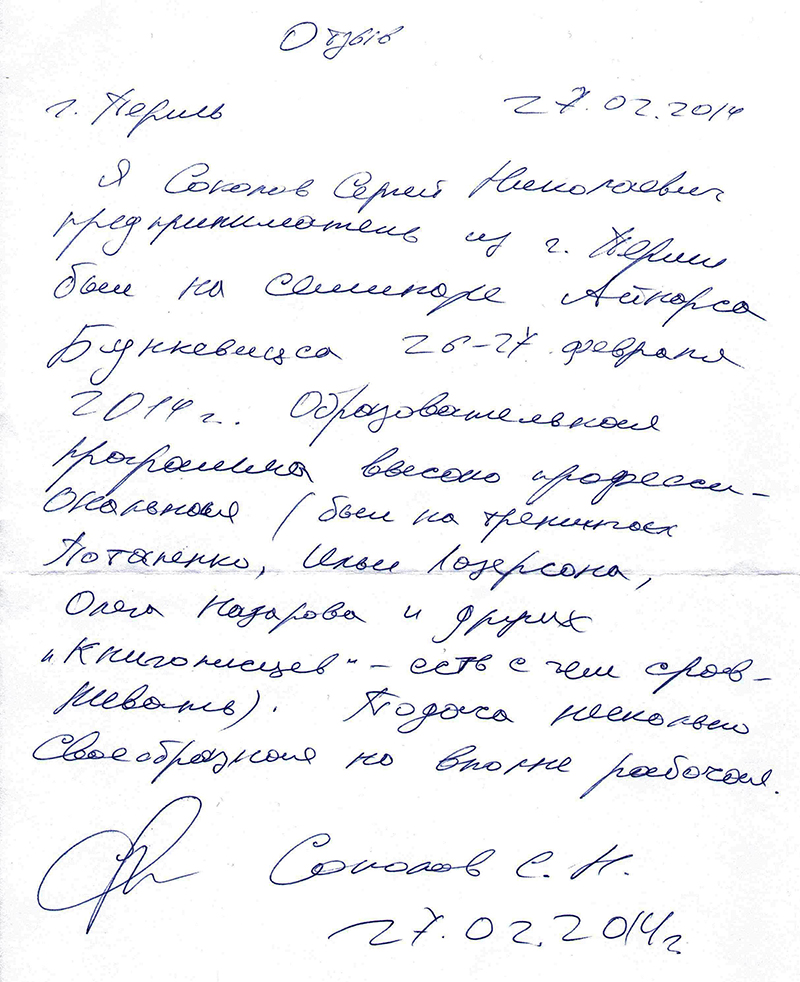 Отзыв
г. Пермь 27.02.2014
Я Соколов Сергей Николаевич
предприниматель из г. Перми
был на семинаре Айнарса
Бункевицса 26-27 февраля
2014 г. Образовательная
программа высоко професси-
ональная (был на тренингах
Потапенко, Ильи Лазерсона,
Олега Назарова и других
"Книгописцев" - есть с чем срав-
нивать). Подача несколько
Своеобразная но вполне рабочая.
Соколов С. Н.
27.02.2014г.